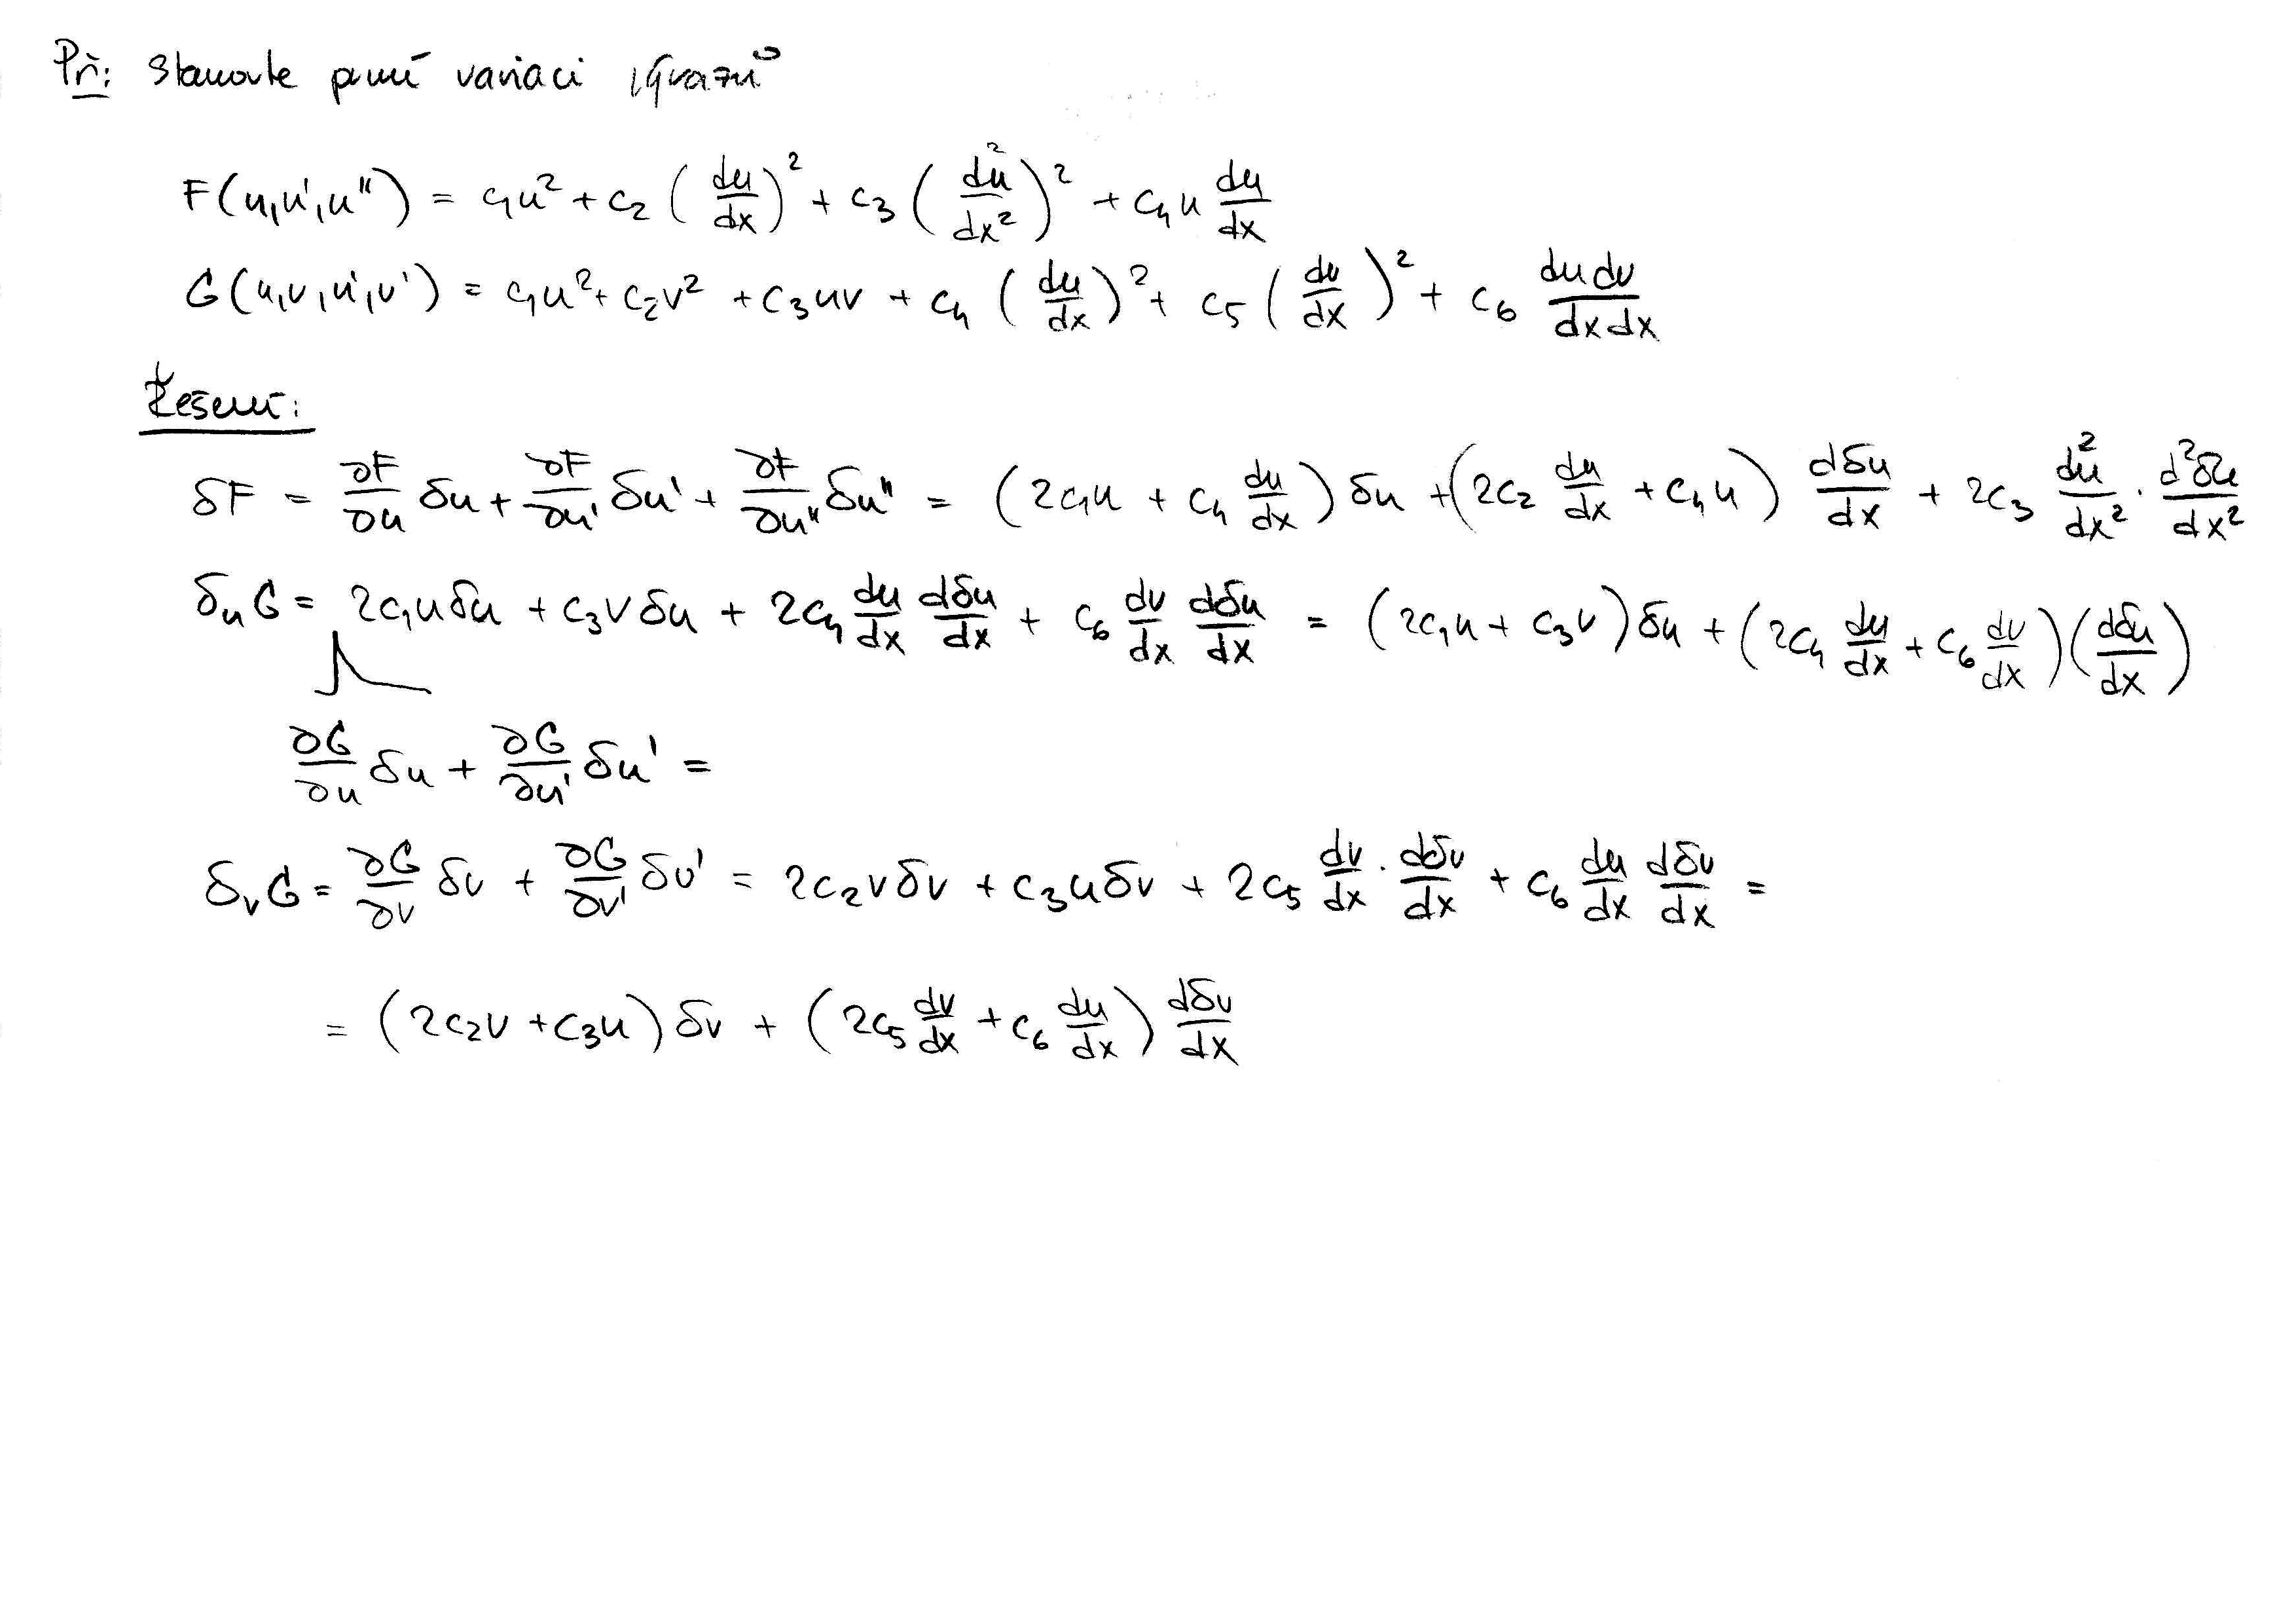 Př: Stanovte první variaci výrazů
F(u,u',u'') = c₁u² + c₂ (du/dx)² + c₃ (d²u/dx²)² + c₄ u du/dx
G(u,v,u',v') = c₁u² + c₂v² + c₃uv + c₄ (du/dx)² + c₅ (dv/dx)² + c₆ du dv/dx dx
Řešení:
δF = ∂F/∂u δu + ∂F/∂u' δu' + ∂F/∂u'' δu'' = (2c₁u + c₄ du/dx) δu + (2c₂ du/dx + c₄u) dδu/dx + 2c₃ d²u/dx² · d²δu/dx²
δᵤG = 2c₁uδu + c₃vδu + 2c₄ du/dx dδu/dx + c₆ dv/dx dδu/dx = (2c₁u + c₃v) δu + (2c₄ du/dx + c₆ dv/dx)(dδu/dx)
∂G/∂u δu + ∂G/∂u' δu' =
δᵥG = ∂G/∂v δv + ∂G/∂v' δv' = 2c₂vδv + c₃uδv + 2c₅ dv/dx · dδv/dx + c₆ du/dx dδv/dx =
= (2c₂v + c₃u) δv + (2c₅ dv/dx + c₆ du/dx) dδv/dx